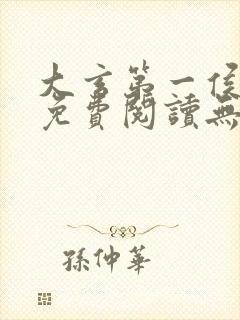 大言第一侯
免費閱讀無
孫仲華